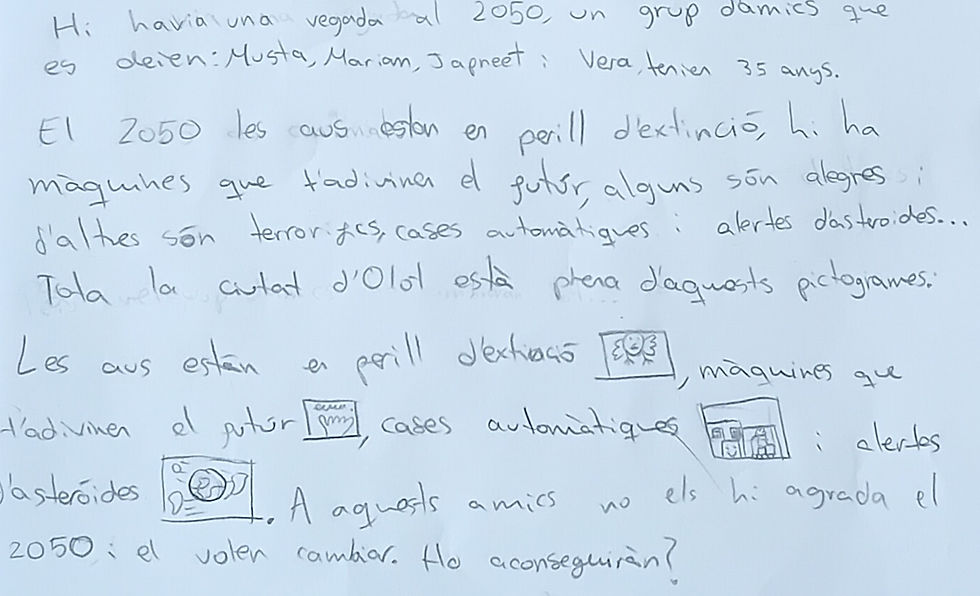 Hi havia una vegada al 2050, un grup d'amics que
es deien: Musta, Marian, Japneet i Vera, tenien 35 anys.
El 2050 les aus estan en perill d'extinció, hi ha
màquines que t'adivinen el futúr, alguns són alegres i
d'altres són terrorifics, cases automàtiques i alertes d'asteroides...
Tota la ciutat d'Olot està plena d'aquests pictogrames:
Les aus están en perill d'extinció , màquines que
t'adivinen el futúr , cases automàtiques i alertes
d'asteróides . A aquests amics no els hi agrada el
2050 i el volen cambiar. Ho aconseguiràn?